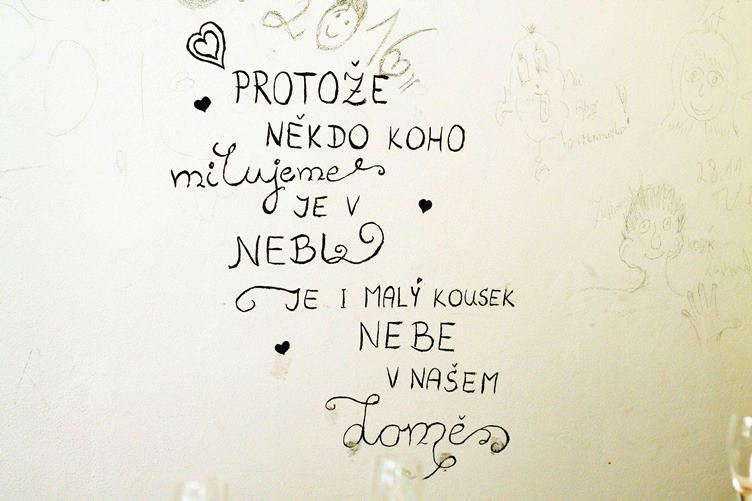 2016
PROTOŽE
NĚKDO KOHO
milujeme
JE V
NEBI
JE I MALÝ KOUSEK
NEBE
V NAŠEM
domě